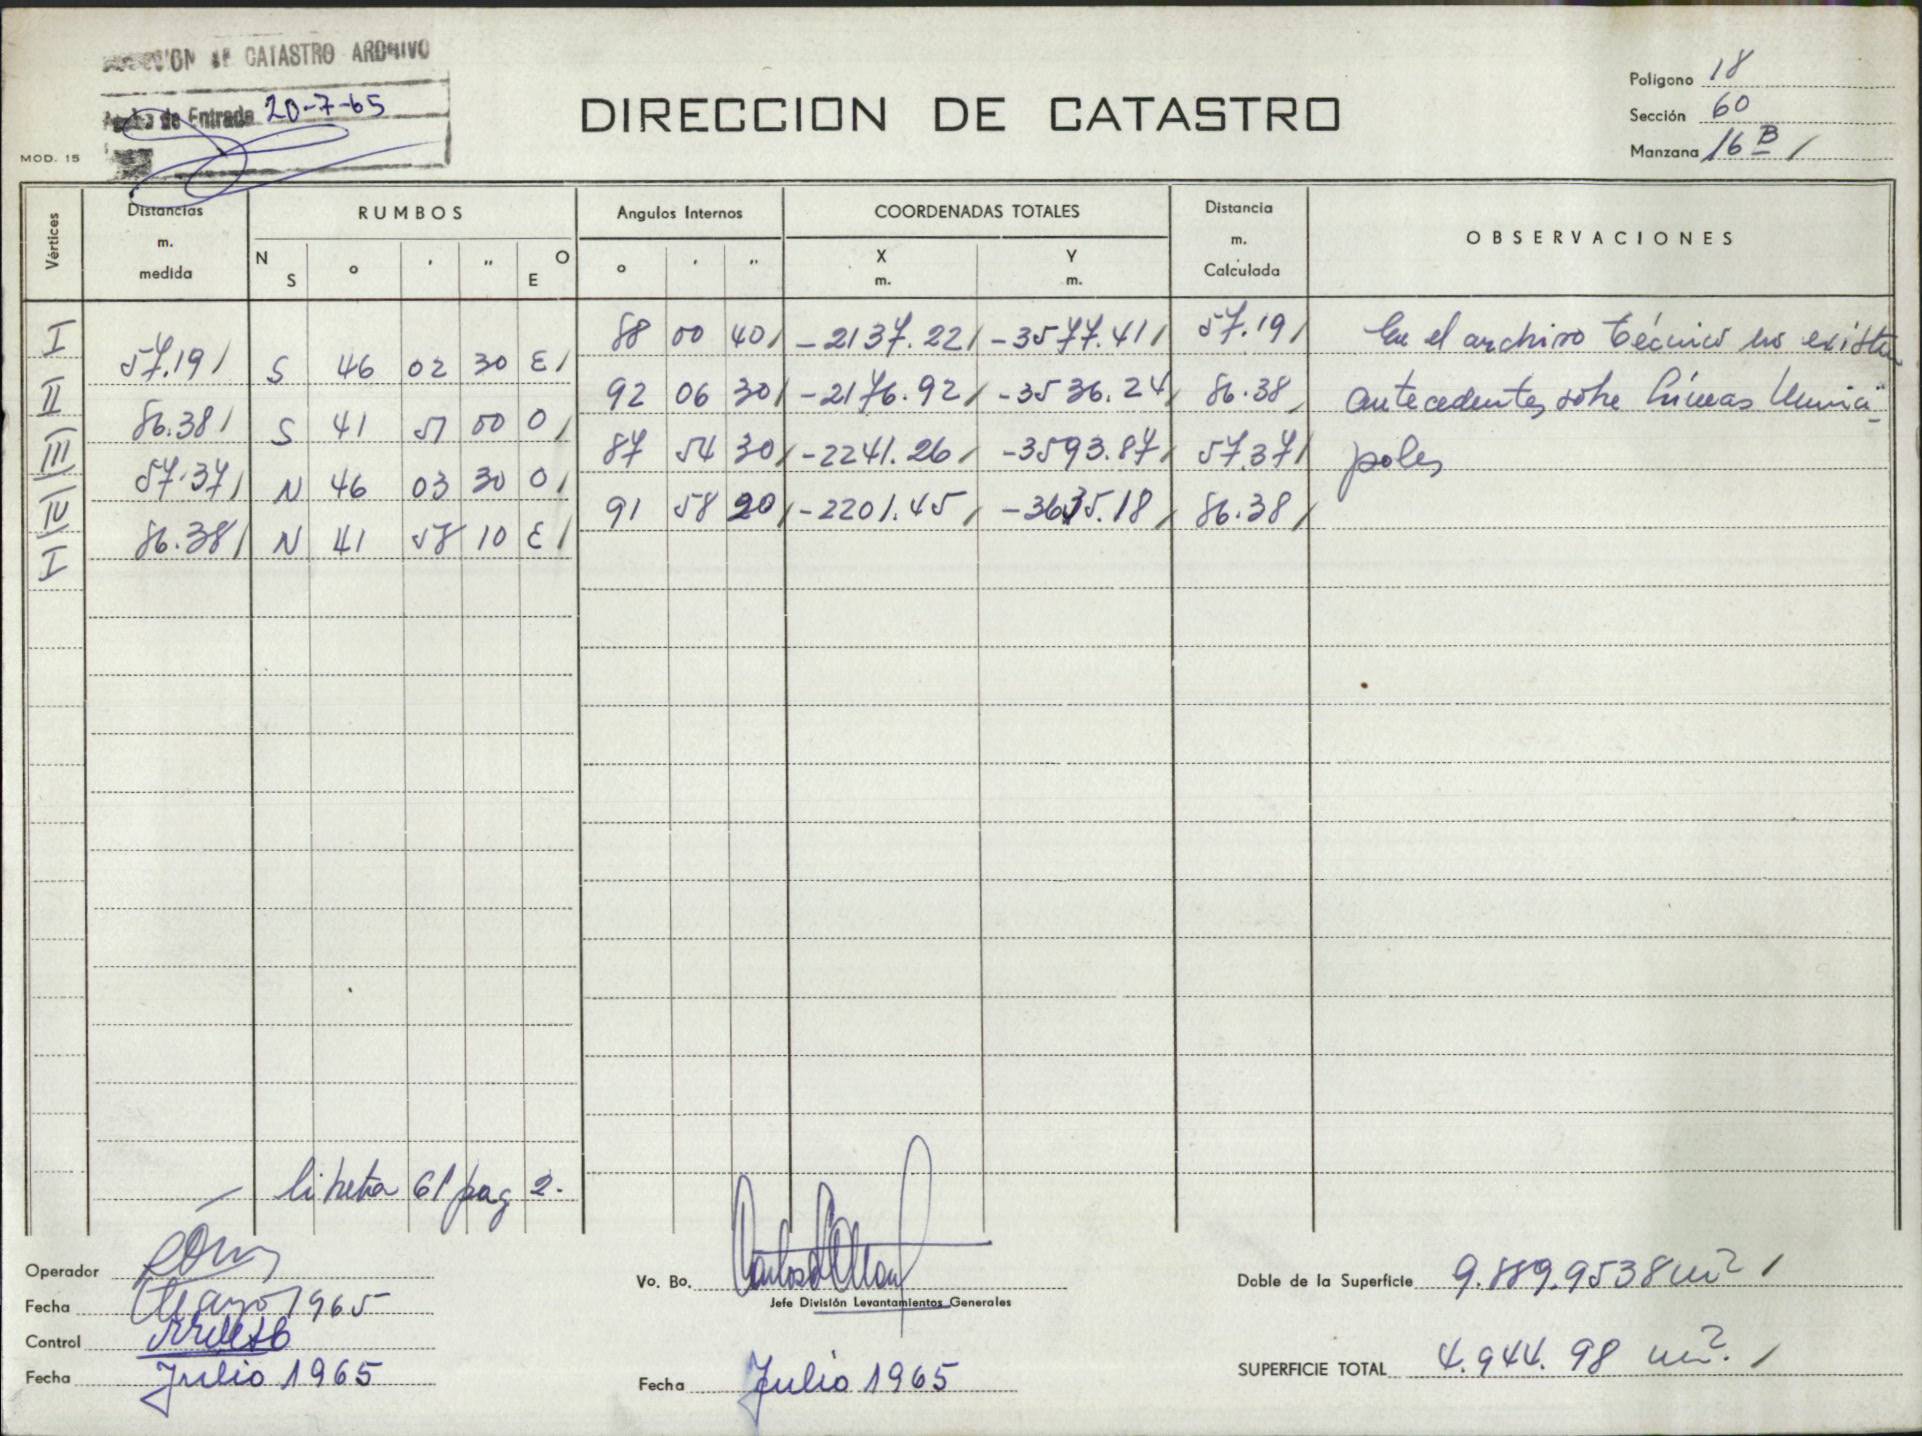 DE CATASTRO ARCHIVO
de Entrada 20-7-65
MOD. 15
DIRECCION DE CATASTRO
Polígono 18
Sección 60
Manzana 16 B /
Vértices
Distancias m. medida
RUMBOS
N S ° ' " O E
Angulos Internos
° ' "
COORDENADAS TOTALES
X m. Y m.
Distancia m. Calculada
OBSERVACIONES
I 88 00 40/ -2137.22/ -3577.41/ 57.19/ En el archivo técnico no existen
57.19/ S 46 02 30 E/
II 92 06 30/ -2176.92/ -3536.24/ 86.38/ antecedentes sobre Líneas Munici
86.38/ S 41 51 00 O/
III 87 54 30/ -2241.26/ -3593.87/ 57.37/ pales
57.37/ N 46 03 30 O/
IV 91 58 20/ -2201.45/ -3635.18/ 86.38/
86.38/ N 41 58 10 E/
I
libreta 61 pag 2.
Operador
Fecha Mayo 1965
Control
Fecha Julio 1965
Vo. Bo.
Jefe División Levantamientos Generales
Fecha Julio 1965
Doble de la Superficie 9.889.9538 m2 /
SUPERFICIE TOTAL 4.944.98 m2. /